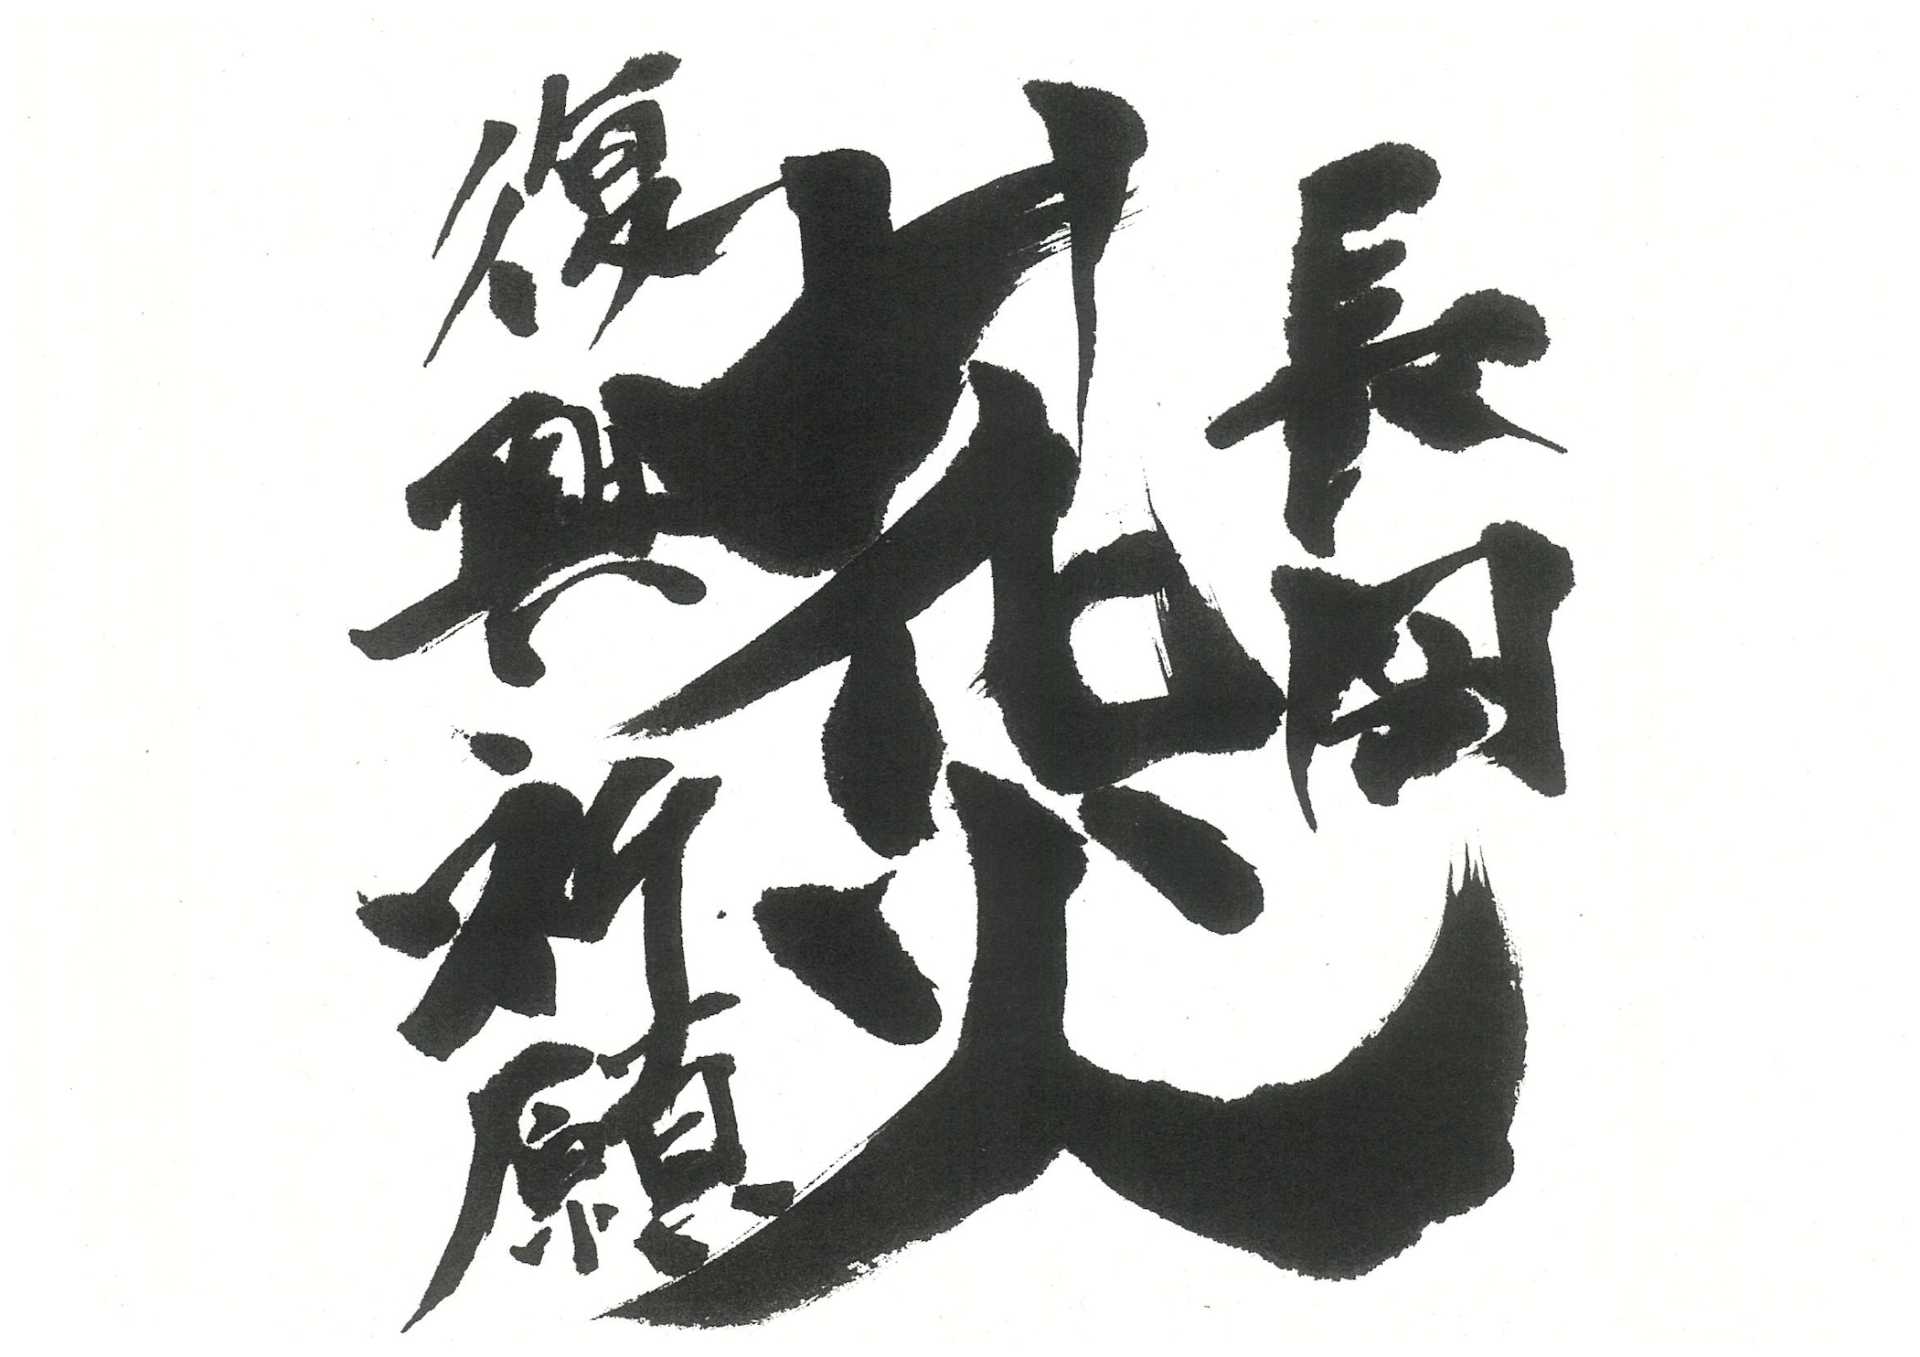 長岡
花火
復興祈願